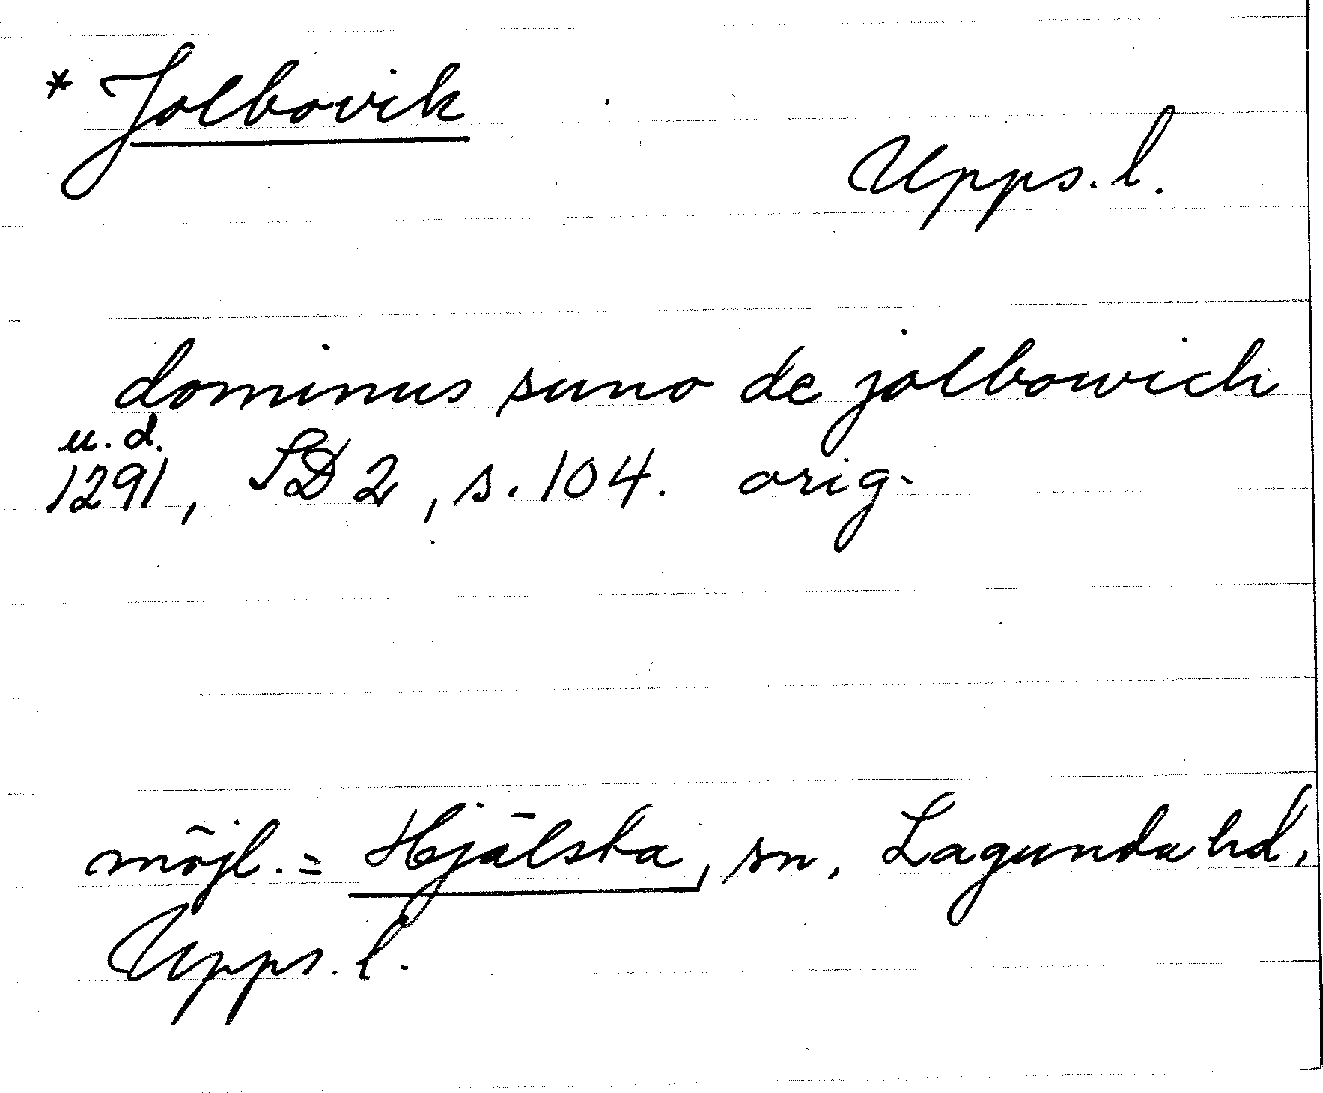 * Jolbovik
Upps. l.
dominus suno de jolbowich
u. d.
1291, SD 2, s. 104. orig.
möjl. = Hjälsta, sn, Lagunda hd,
Upps. l.